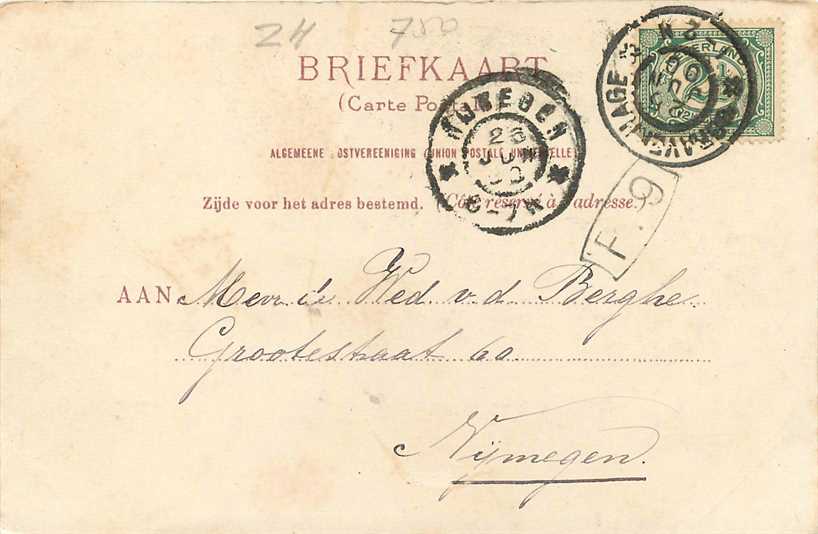 24 750
BRIEFKAART
(Carte Postale)
ALGEMEENE POSTVEREENIGING (UNION POSTALE UNIVERSELLE)
Zijde voor het adres bestemd. (Côté réservé à l'adresse.)
NIJMEGEN
26
JUN
6-7N
'S GRAVENHAGE
NEDERLAND
2½
F. 9
AAN Mevr. de Wed. v. d. Berghe
Grootestraat 60
Nijmegen.